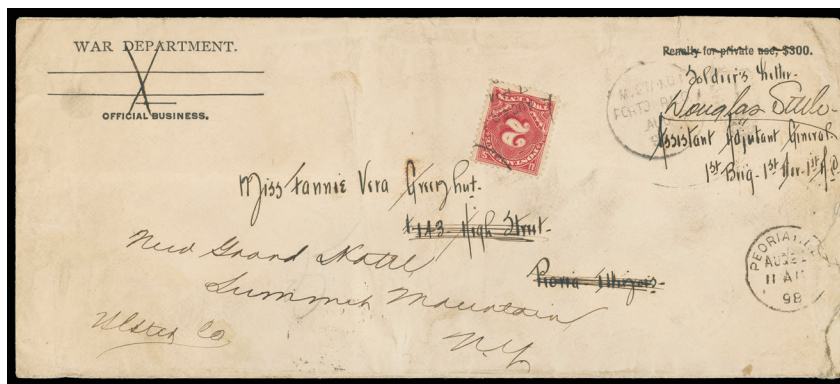 WAR DEPARTMENT.
OFFICIAL BUSINESS.
Penalty for private use, $300.
Soldier's Letter.
Douglas
Assistant Adjutant General
1st Brig. 1st Div. 1st
2
Miss Fannie Vera Greenhut.
143 High Street.
Peoria Illinois.
New Grand Hotel
Summit Mountain
Ulster Co
N.Y.
PEORIA, ILL.
AUG
11 AM
98